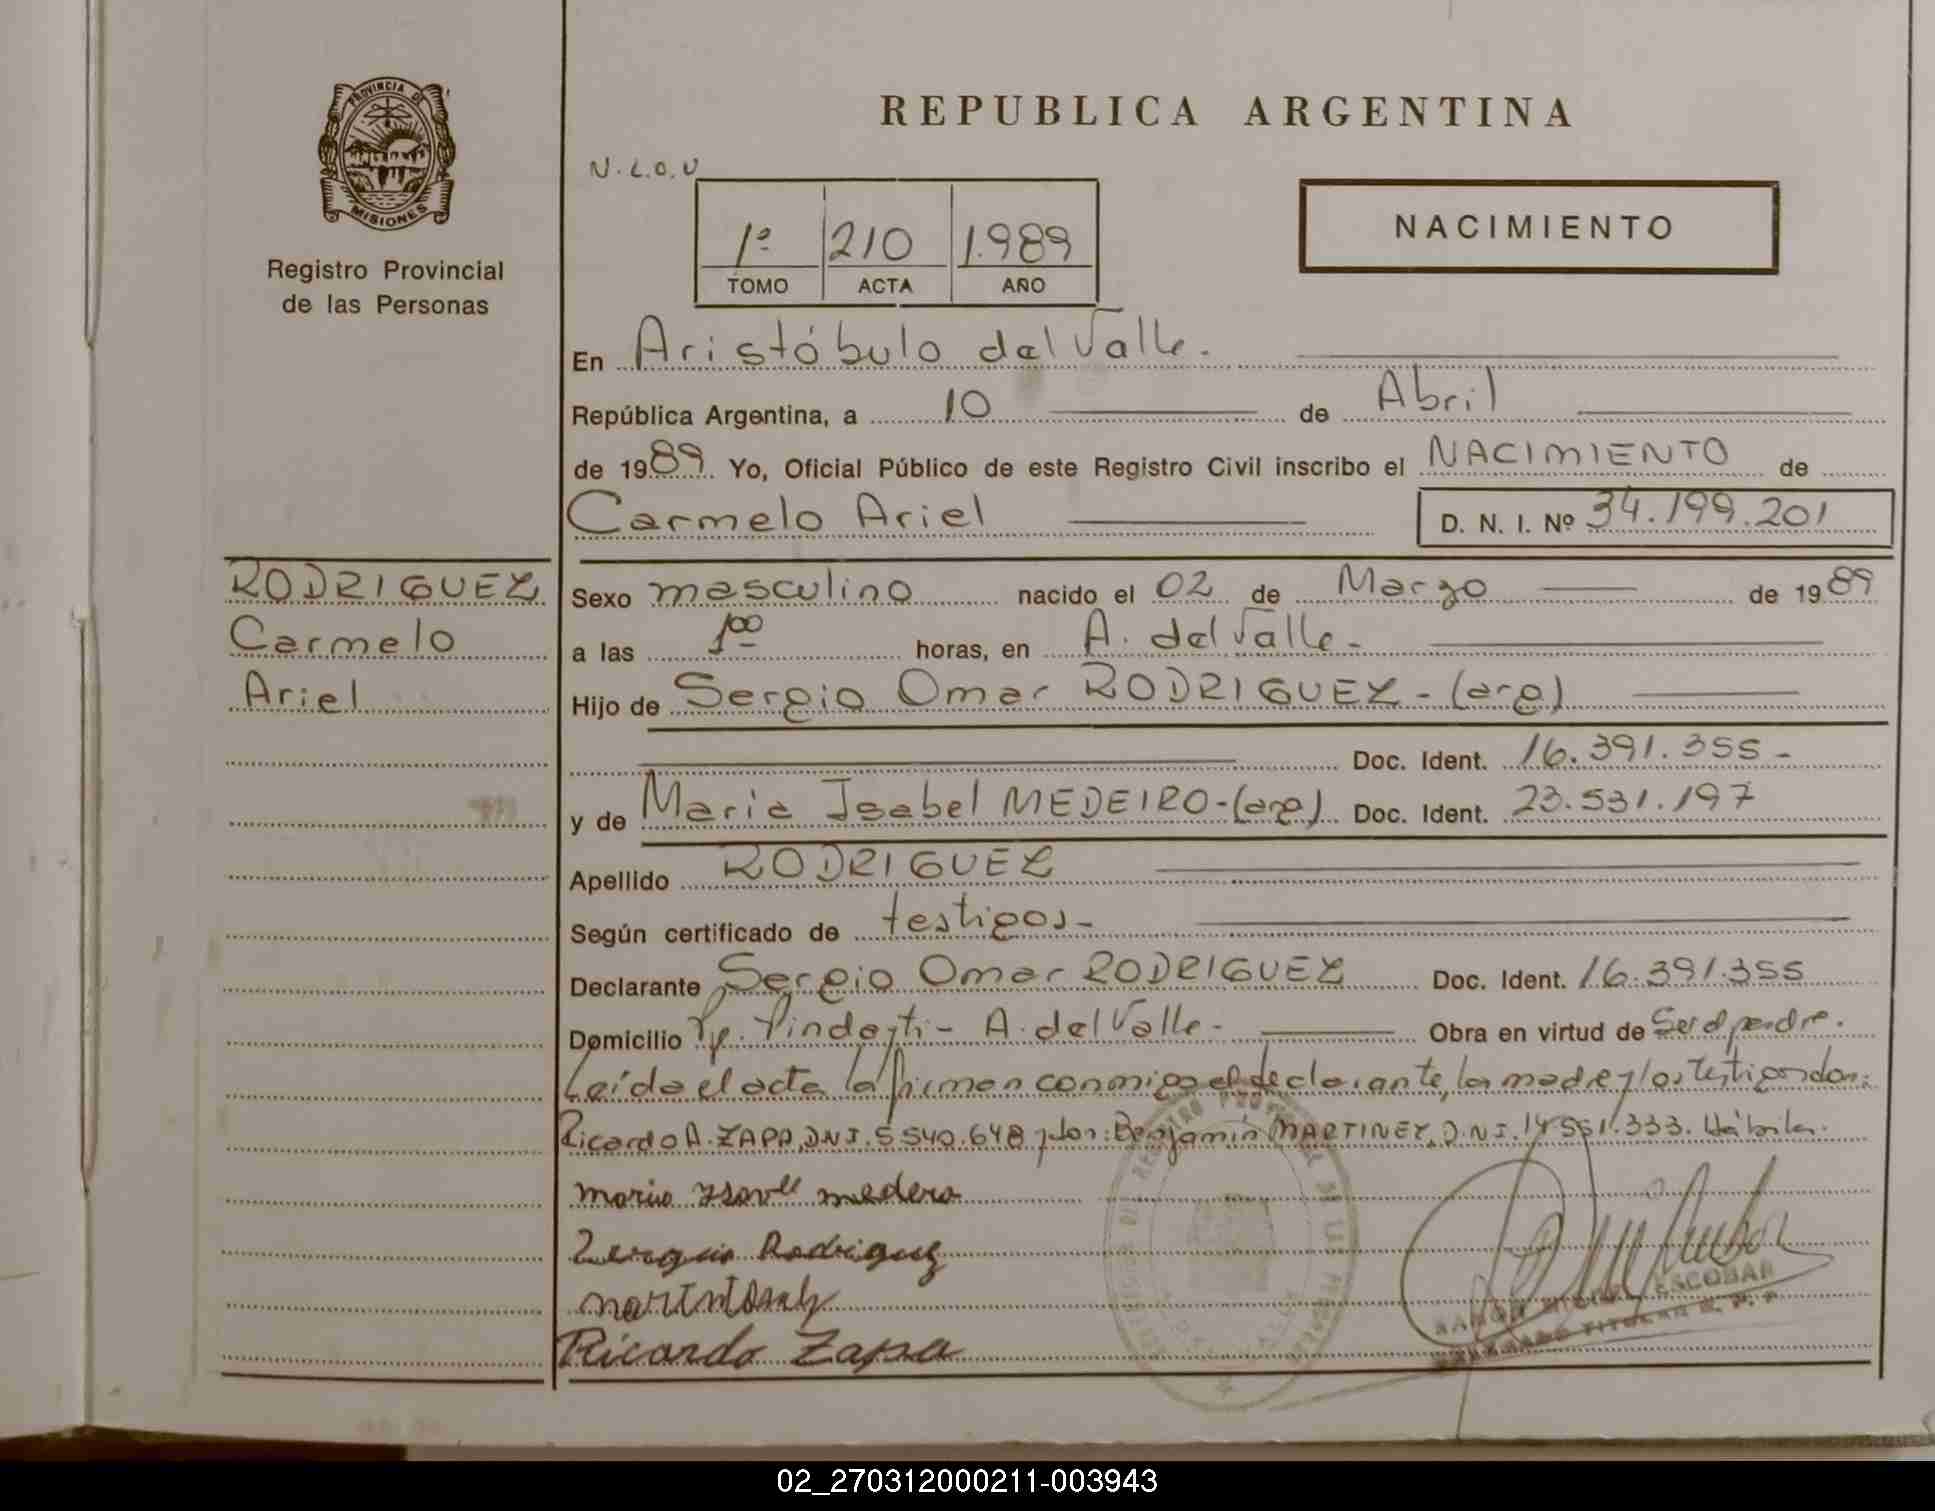 PROVINCIA DE
MISIONES
Registro Provincial
de las Personas
REPUBLICA ARGENTINA
N.L.O.U
NACIMIENTO
1º 210 1.989
TOMO ACTA AÑO
En Aristóbulo del Valle.
República Argentina, a 10 de Abril
de 1989 Yo, Oficial Público de este Registro Civil inscribo el NACIMIENTO de
Carmelo Ariel D. N. I. Nº 34.199.201
RODRIGUEZ
Carmelo
Ariel
Sexo masculino nacido el 02 de Marzo de 1989
a las 1 00 horas, en A. del Valle.-
Hijo de Sergio Omar RODRIGUEZ - (arg)
Doc. Ident. 16.391.355-
y de Maria Isabel MEDEIRO-(arg) Doc. Ident. 23.531.197
Apellido RODRIGUEZ
Según certificado de testigos-
Declarante Sergio Omar RODRIGUEZ Doc. Ident. 16.391.355
Domicilio Pindayti- A. del Valle- Obra en virtud de Ser el padre.
Leída el acta la firman conmigo el declarante, la madre y los testigos don:
Ricardo A. ZAPA, D.N.I. 5.540.648 y don: Benjamin MARTINEZ, D.N.I. 14.551.333. Hábiles.
maria medero
Rodriguez
Ricardo Zapa
ESCOBAR
02_270312000211-003943